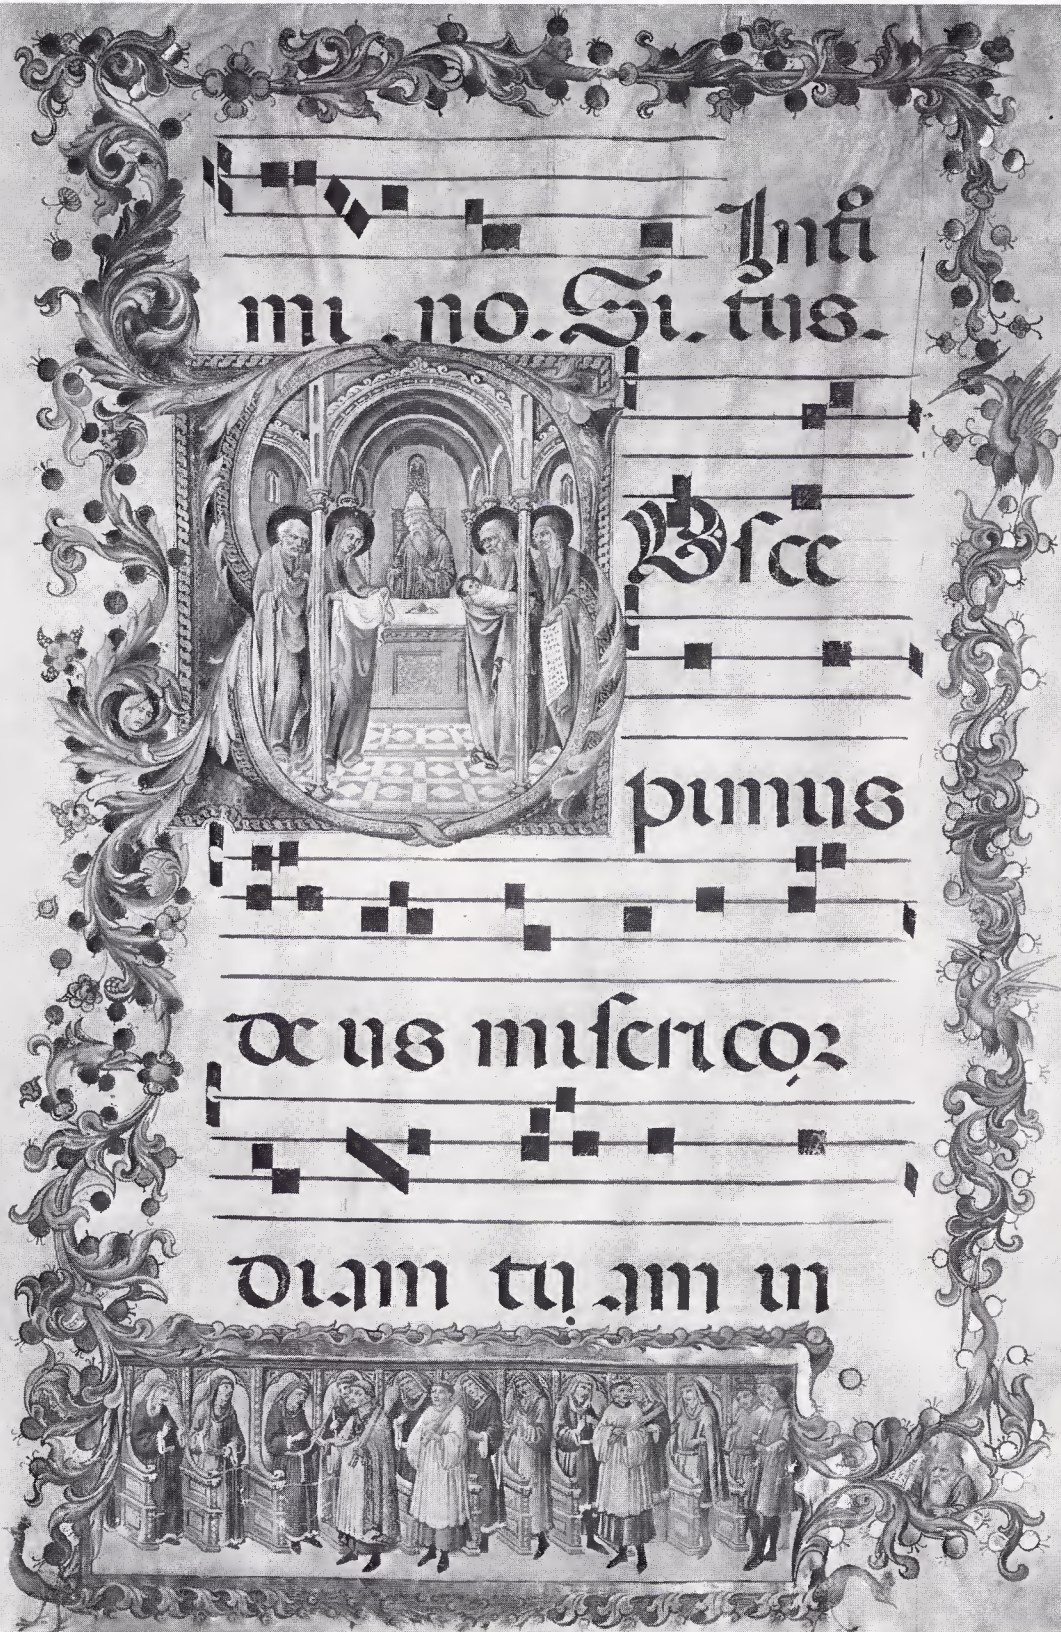 Intͦi
mi no. Si. tus.
Vsce
pimus
de us misericor
diam tu am in